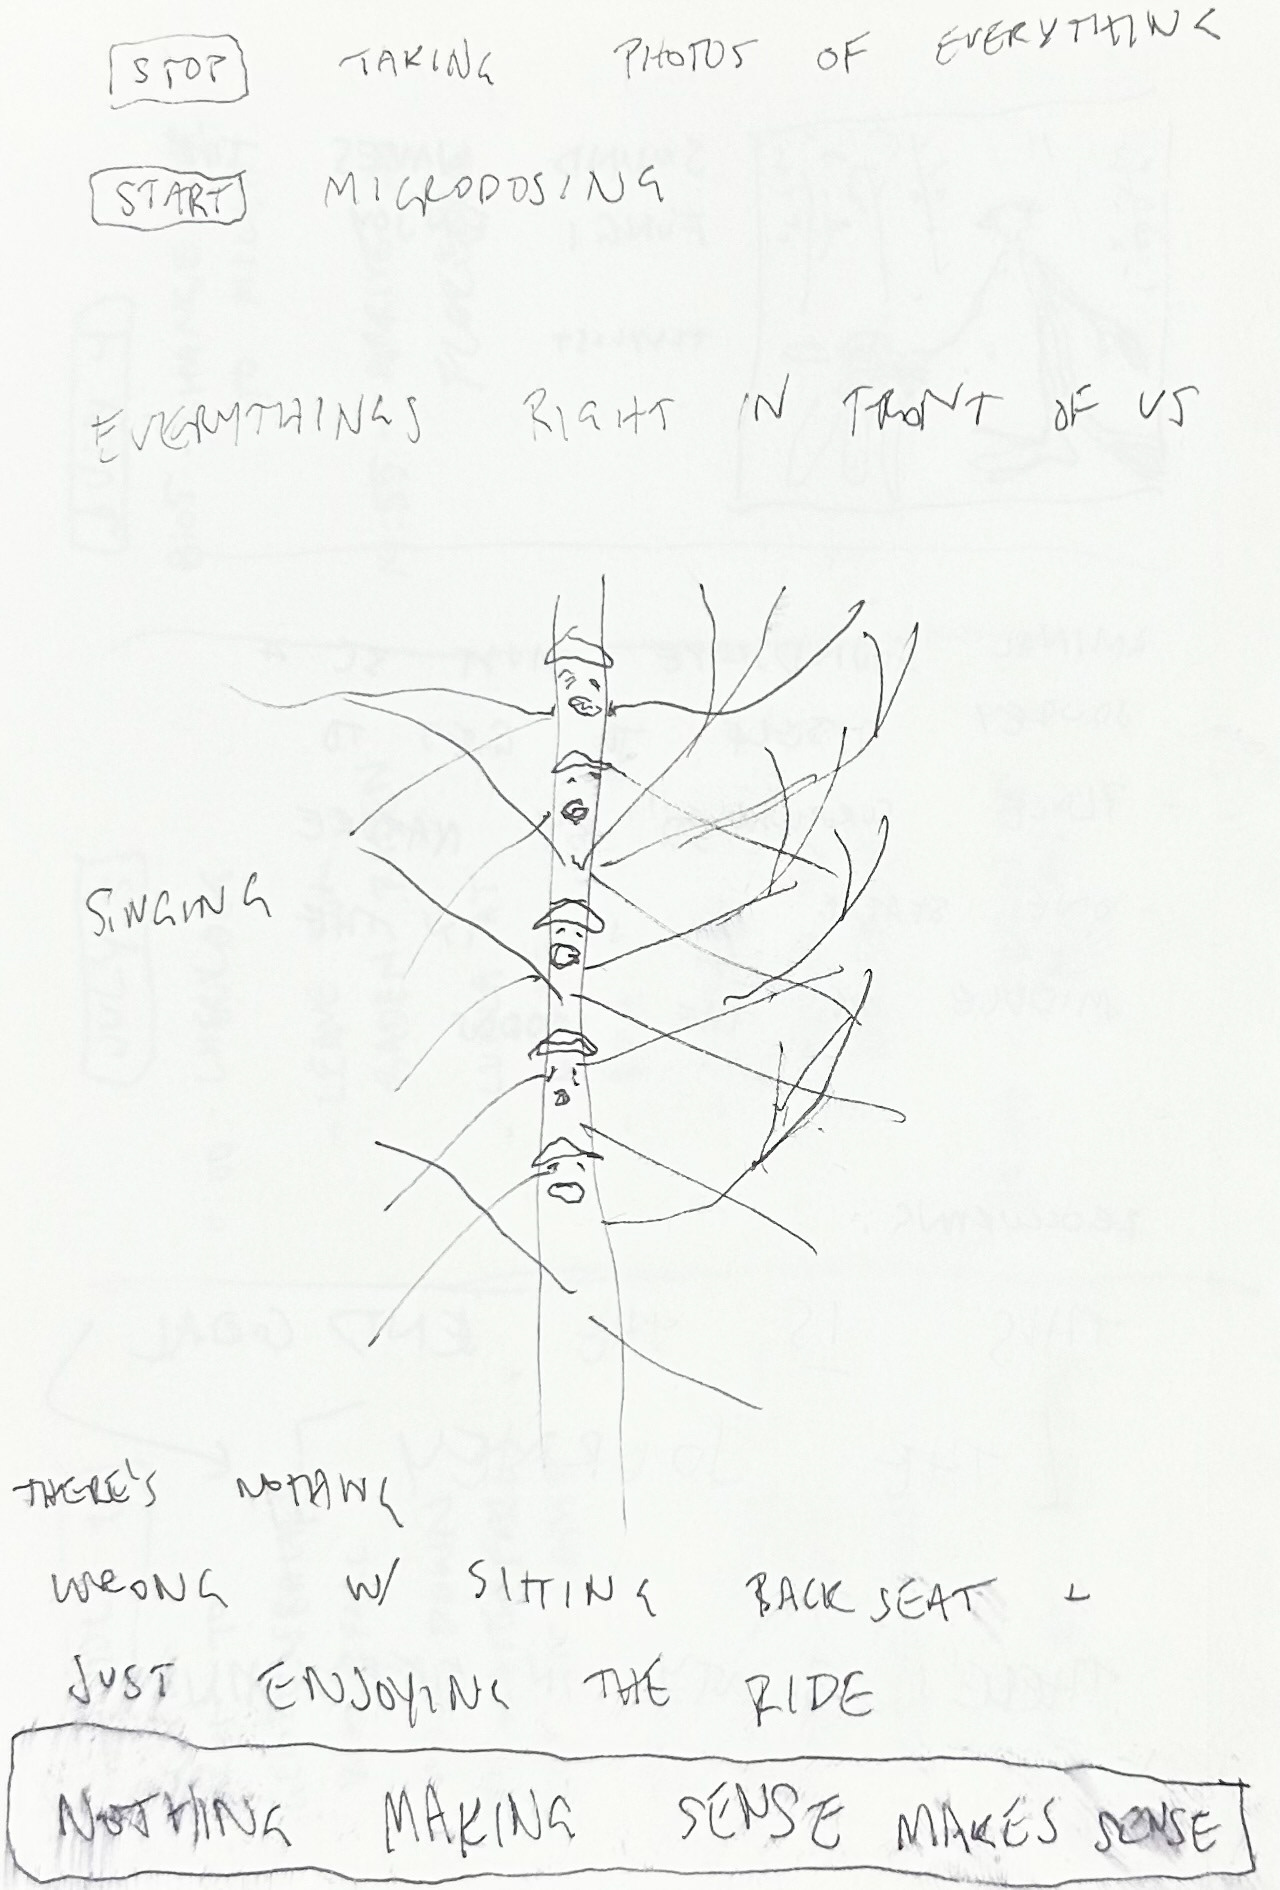 STOP TAKING PHOTOS OF EVERYTHING
START MICRODOSING
EVERYTHINGS RIGHT IN FRONT OF US
SINGING
THERE'S NOTHING
WRONG W/ SITTING BACK SEAT +
JUST ENJOYING THE RIDE
NOTHING MAKING SENSE MAKES SENSE